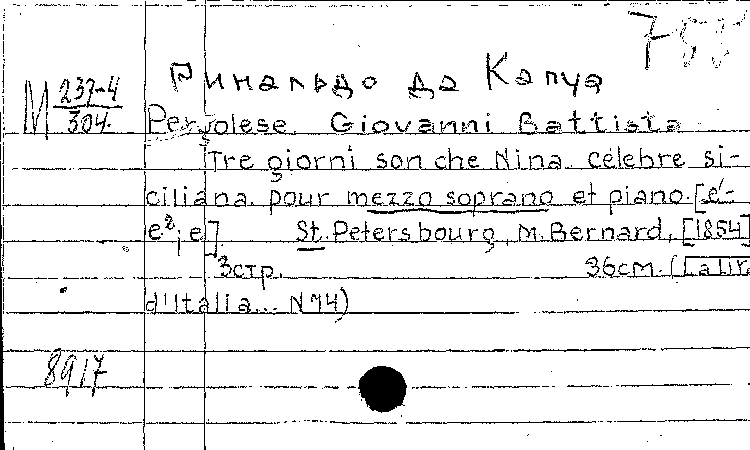 Ринальдо да Капуа
М 237-4/304.
Pergolese, Giovanni Battista
Tre giorni son che Nina. célèbre si-
ciliana. pour mezzo soprano et piano. [e'-
e², e]. St. Petersbourg, M. Bernard, [1854]
3стр. 36см. (La lir
d'Italia... N14)
8917